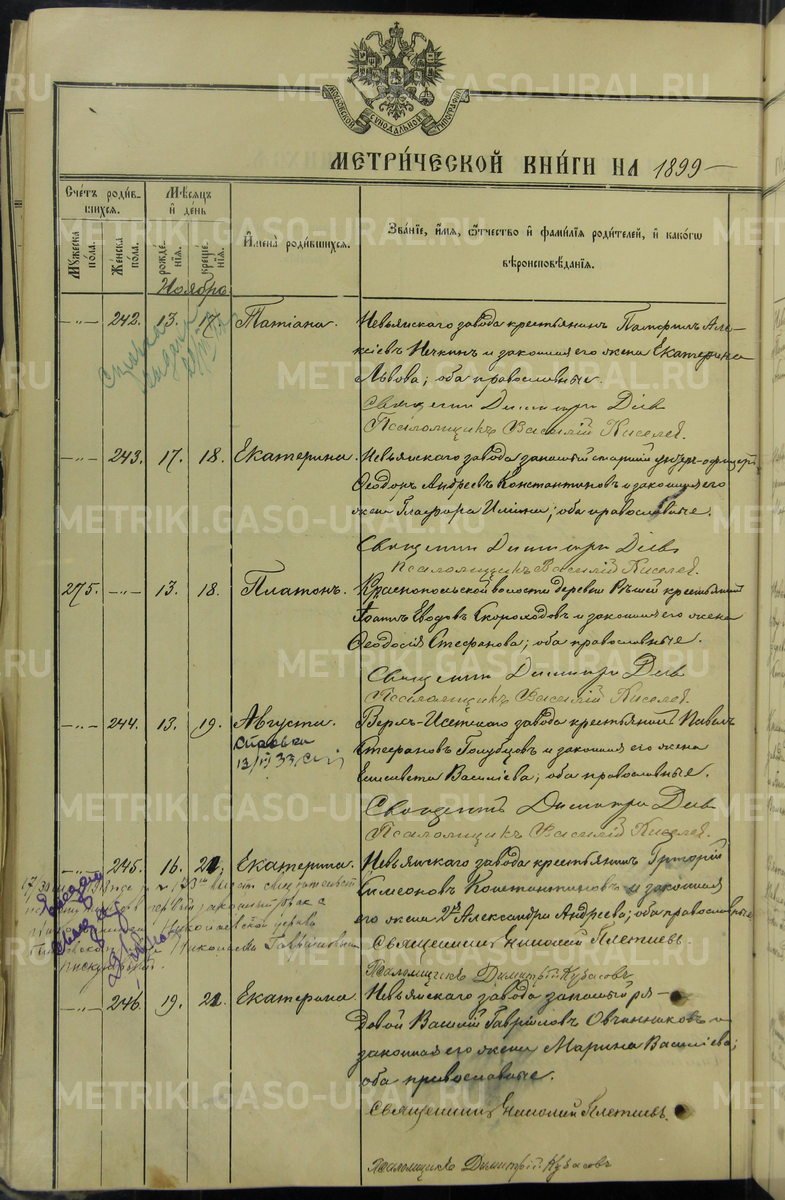 МОСКОВСКОЙ СѴНОДАЛЬНОЙ ТИПОГРАФІИ
МЕТРИ́ЧЕСКОЙ КНИ́ГИ НА 1899
Сче́тъ роди́в-
шихся.
Му́жеска по́ла.
Же́нска по́ла.
Мѣ́сяцъ и҆ де́нь
рожде́-
нїѧ.
креще́-
нїѧ.
И҆мена̀ роди́вшихся.
Зва́нїе, и҆́мя, ѻ҆́тчество и҆ фами́лїя роди́телей, и҆ како́гѡ
вѣроисповѣ́данїя.
Ноябрь
-"- 242. 13. 17 Татіана. Невьянскаго завода крестьянинъ Памфилъ Але-
ксіевъ Нечкинъ и законная его жена Екатерина
Львова; оба православные.
Священн. Димитрій Діев
Псаломщикъ Василій Киселев.
-"- 243. 17. 18. Екатерина. Невьянскаго завода запасный старшій унтеръ-офицеръ
Ѳеодоръ Андреевъ Константиновъ и законная его
жена Глафира Ильина; оба православные.
Священн. Димитрій Діев
Псаломщикъ Василій Киселев.
275. -"- 13. 18. Платонъ. Краснопольской волости деревни крестьянинъ
Еводовъ Скороходовъ и законная его жена
Ѳеодосія Стефанова; оба православные.
Священн. Димитрій Діев
Псаломщикъ Василій Киселев.
-"- 244. 13. 19. Августа. Верхъ-Исетскаго завода крестьянинъ Павелъ
Справка
Стефановъ Голубцовъ и законная его жена
Елисавета Василіева; оба православные.
Священникъ Димитрій Діев
Псаломщикъ Василій Киселев.
-"- 245. 16. 21. Екатерина. Невьянскаго завода крестьянинъ Григорій
Симеоновъ Константиновъ и законная
его жена Александра Андреева; оба православные
Священникъ Николай Плетневъ.
Псаломщикъ Димитрій Кубасовъ
-"- 246. 19. 21. Екатерина. Невьянскаго завода запасный ря-
довой Василій Гавріиловъ Овчинниковъ и
законная его жена Марина Василіева;
оба православные.
Священникъ Николай Плетневъ.
Псаломщикъ Димитрій Кубасовъ
METRIKI.GASO-URAL.RU